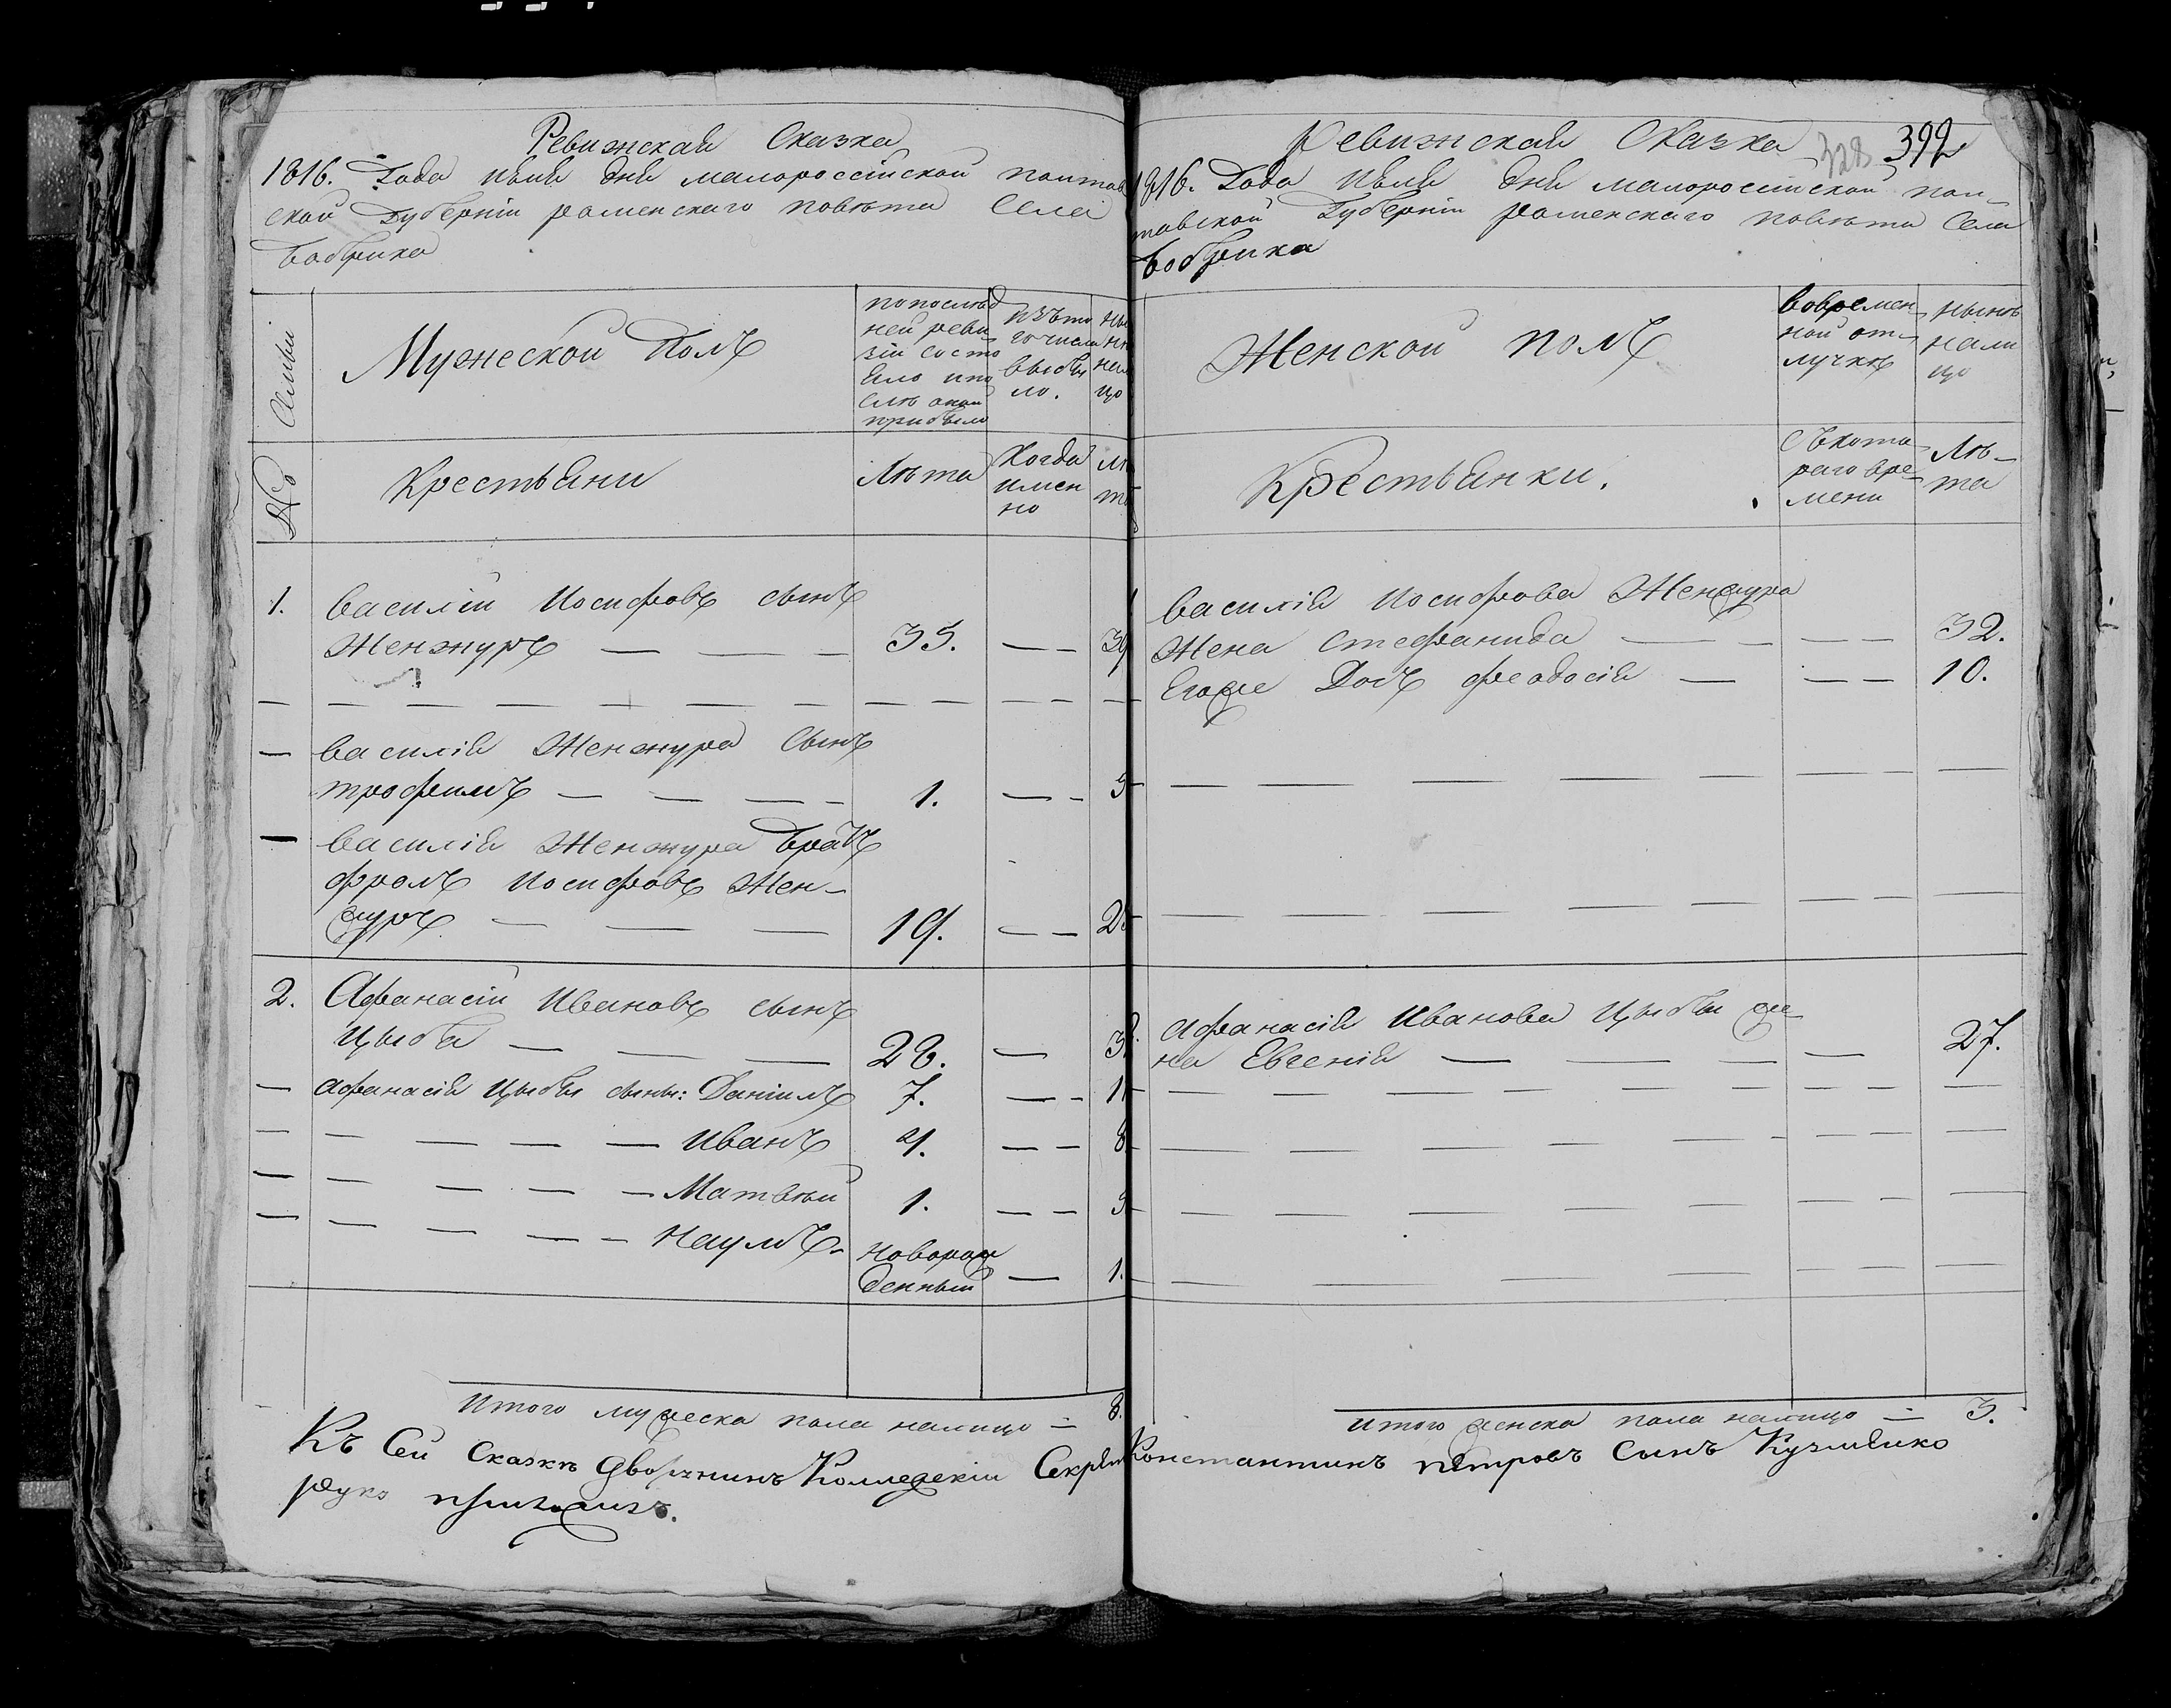 Ревижская Сказка
1816. Года июля дня малороссійской полтав
ской Губерніи роменскаго повѣта Села
бобрика
Семьи
Мужеской Полъ
попослѣд
ней реви
зіи состо
яло ипо
слѣ оной
прибыло
изъто
гочисла
выбы
ло.
ны
нѣ
на
цо
№
Крестьяни
Лѣта
Когда
имен
но
Лѣ
та
1. василій Иосифовъ сынъ
Женжуръ — — — 35. — — 39
василія Женжура Сынъ
трофимъ — — — — 1. — — 5
василія Женжура братъ
фролъ Иосифовъ Жен-
журъ — — — 19. — — 2
2. Афанасій Ивановъ сынъ
Цыба — — — 28. — 3
афанасія Цыбы сыны: Даніилъ 7. — — 11
Иванъ 4. — — 8
Матвѣй 1. — — 5
Наумъ новорож
денный — 1.
Итого мужеска пола налицо — 8.
Къ Сей Сказкѣ дворянинъ Колежскіи Секрет
руку приложилъ.
Ревижская Сказка 328 392
1816. Года июля дня малоросійской пол-
тавской Губерніи роменскаго повѣта Села
бобрика
Женской полъ
вовремен
ной от-
лучкѣ
нынѣ
нали
цо
Крестьянки.
Съкото
раго вре-
мени
Лѣ-
та
василія Иосифова Женжура
Жена Стефанида — — — 32.
Егоже Дочъ феодосія — — — 10.
афанасія Иванова Цыбы же
на Евгенія — — — — 27.
Итого женска пола налицо — 3.
Константинъ петровъ Сынъ Кузмѣнко